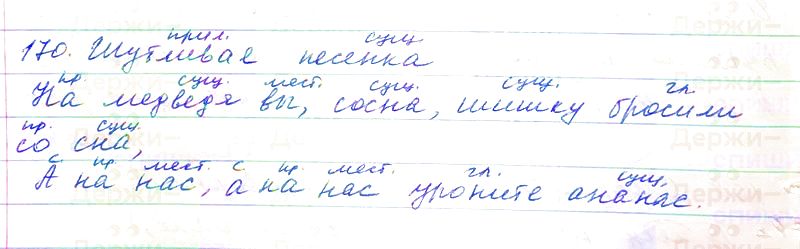 прил. сущ.
170. Шутливая песенка
пр. сущ. мест. сущ. сущ. гл.
На медведя вы, сосна, шишку бросили
пр. сущ.
со сна,
с пр. мест. с пр. мест. гл. сущ.
А на нас, а на нас уроните ананас.